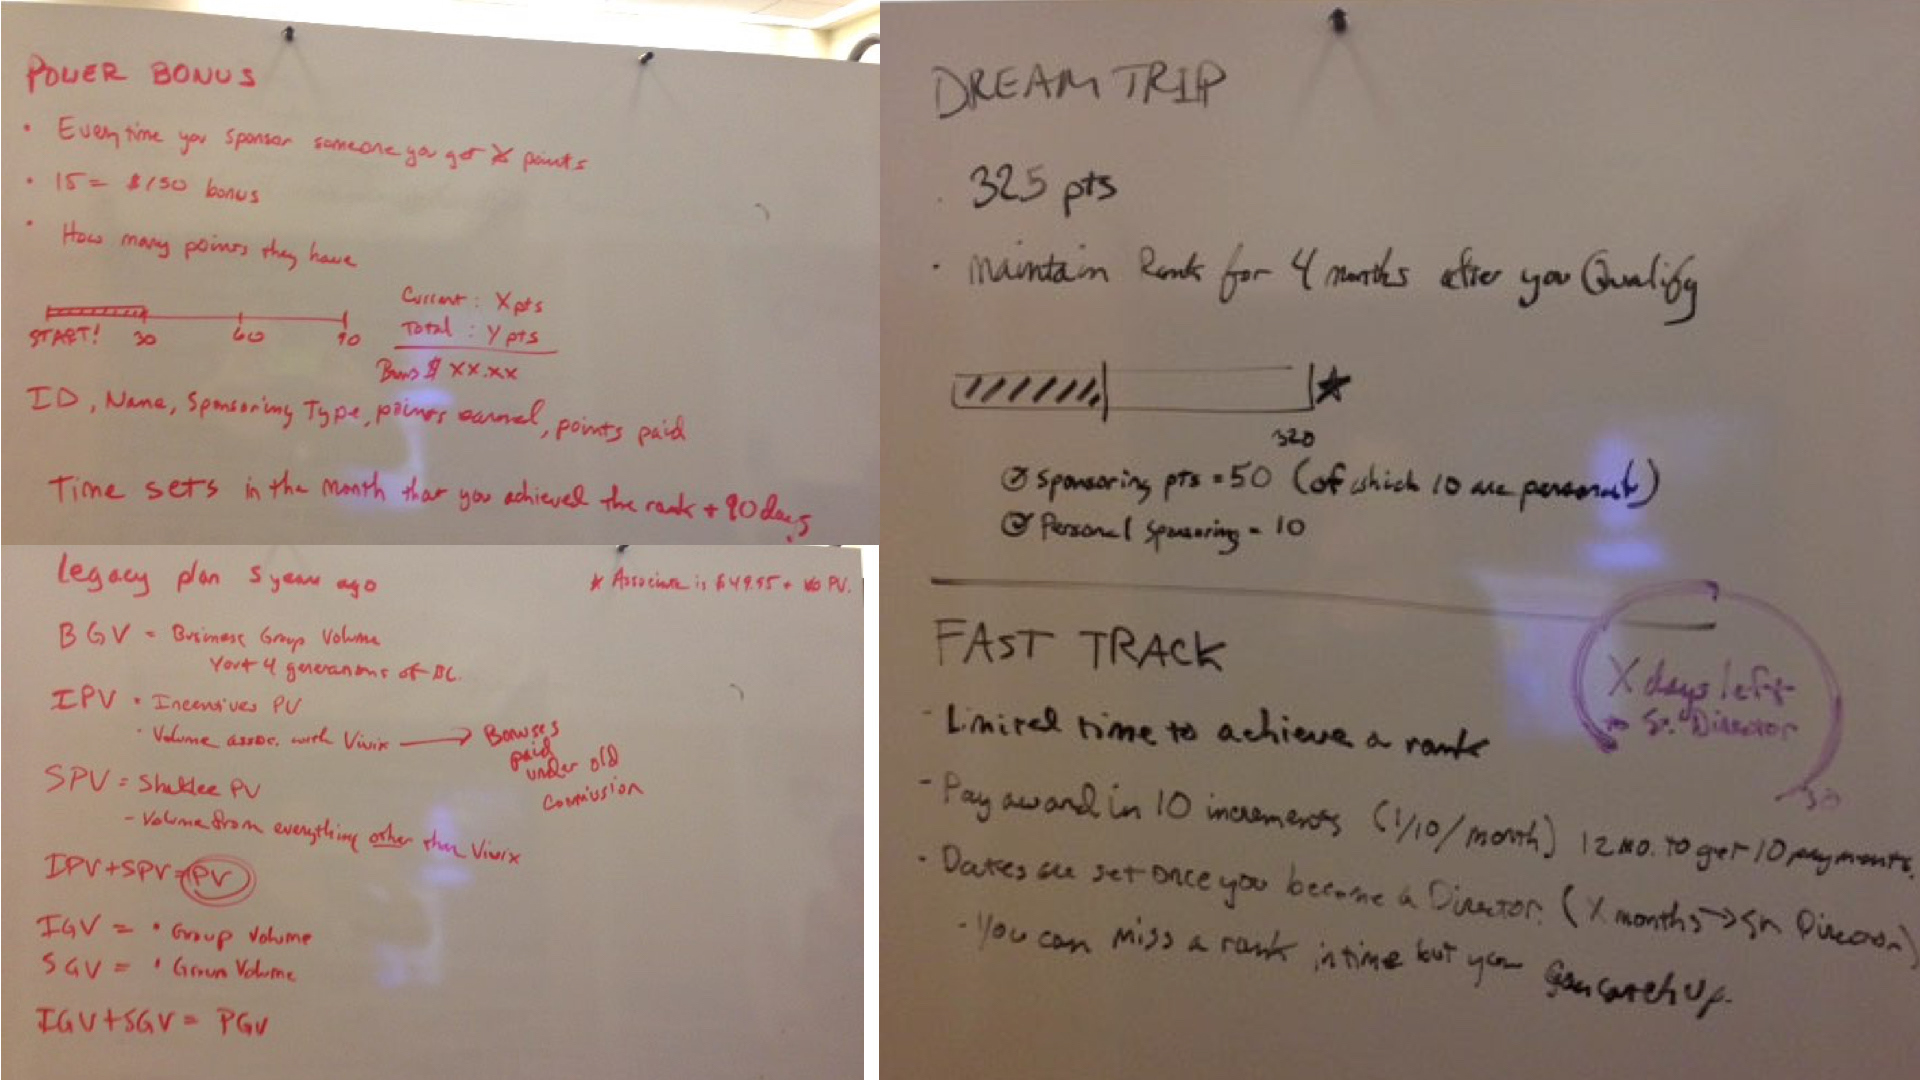 POWER BONUS
• Everytime you sponsor someone you get X points
• 15 = $150 bonus
• How many points they have
START! 30 60 90
Current : X pts
Total : Y pts
Bonus $ XX.XX
ID, Name, Sponsoring Type, points earned, points paid
Time sets in the month that you achieved the rank + 90 days
legacy plan 5 years ago
* Associate is $49.95 + no PV.
BGV = Business Group Volume
You + 4 generations of BC.
IPV • Incentives PV
• Volume assoc. with Vivix → Bonuses
paid
under old
commission
SPV = Shaklee PV
- Volume from everything other than Vivix
IPV+SPV=PV
IGV = • Group Volume
SGV = • Group Volume
IGV+SGV = PGV
DREAM TRIP
• 325 pts
• maintain Rank for 4 months after you Qualify
320
Sponsoring pts = 50 (of which 10 are personal)
Personal Sponsoring = 10
FAST TRACK
X days left
to Sr. Director
30
- Limited time to achieve a rank
- Pay award in 10 increments (1/10/month) 12 mo. to get 10 payments.
• Dates are set once you become a Director. (X months → Sr Director)
- You can miss a rank in time but you can catch up.